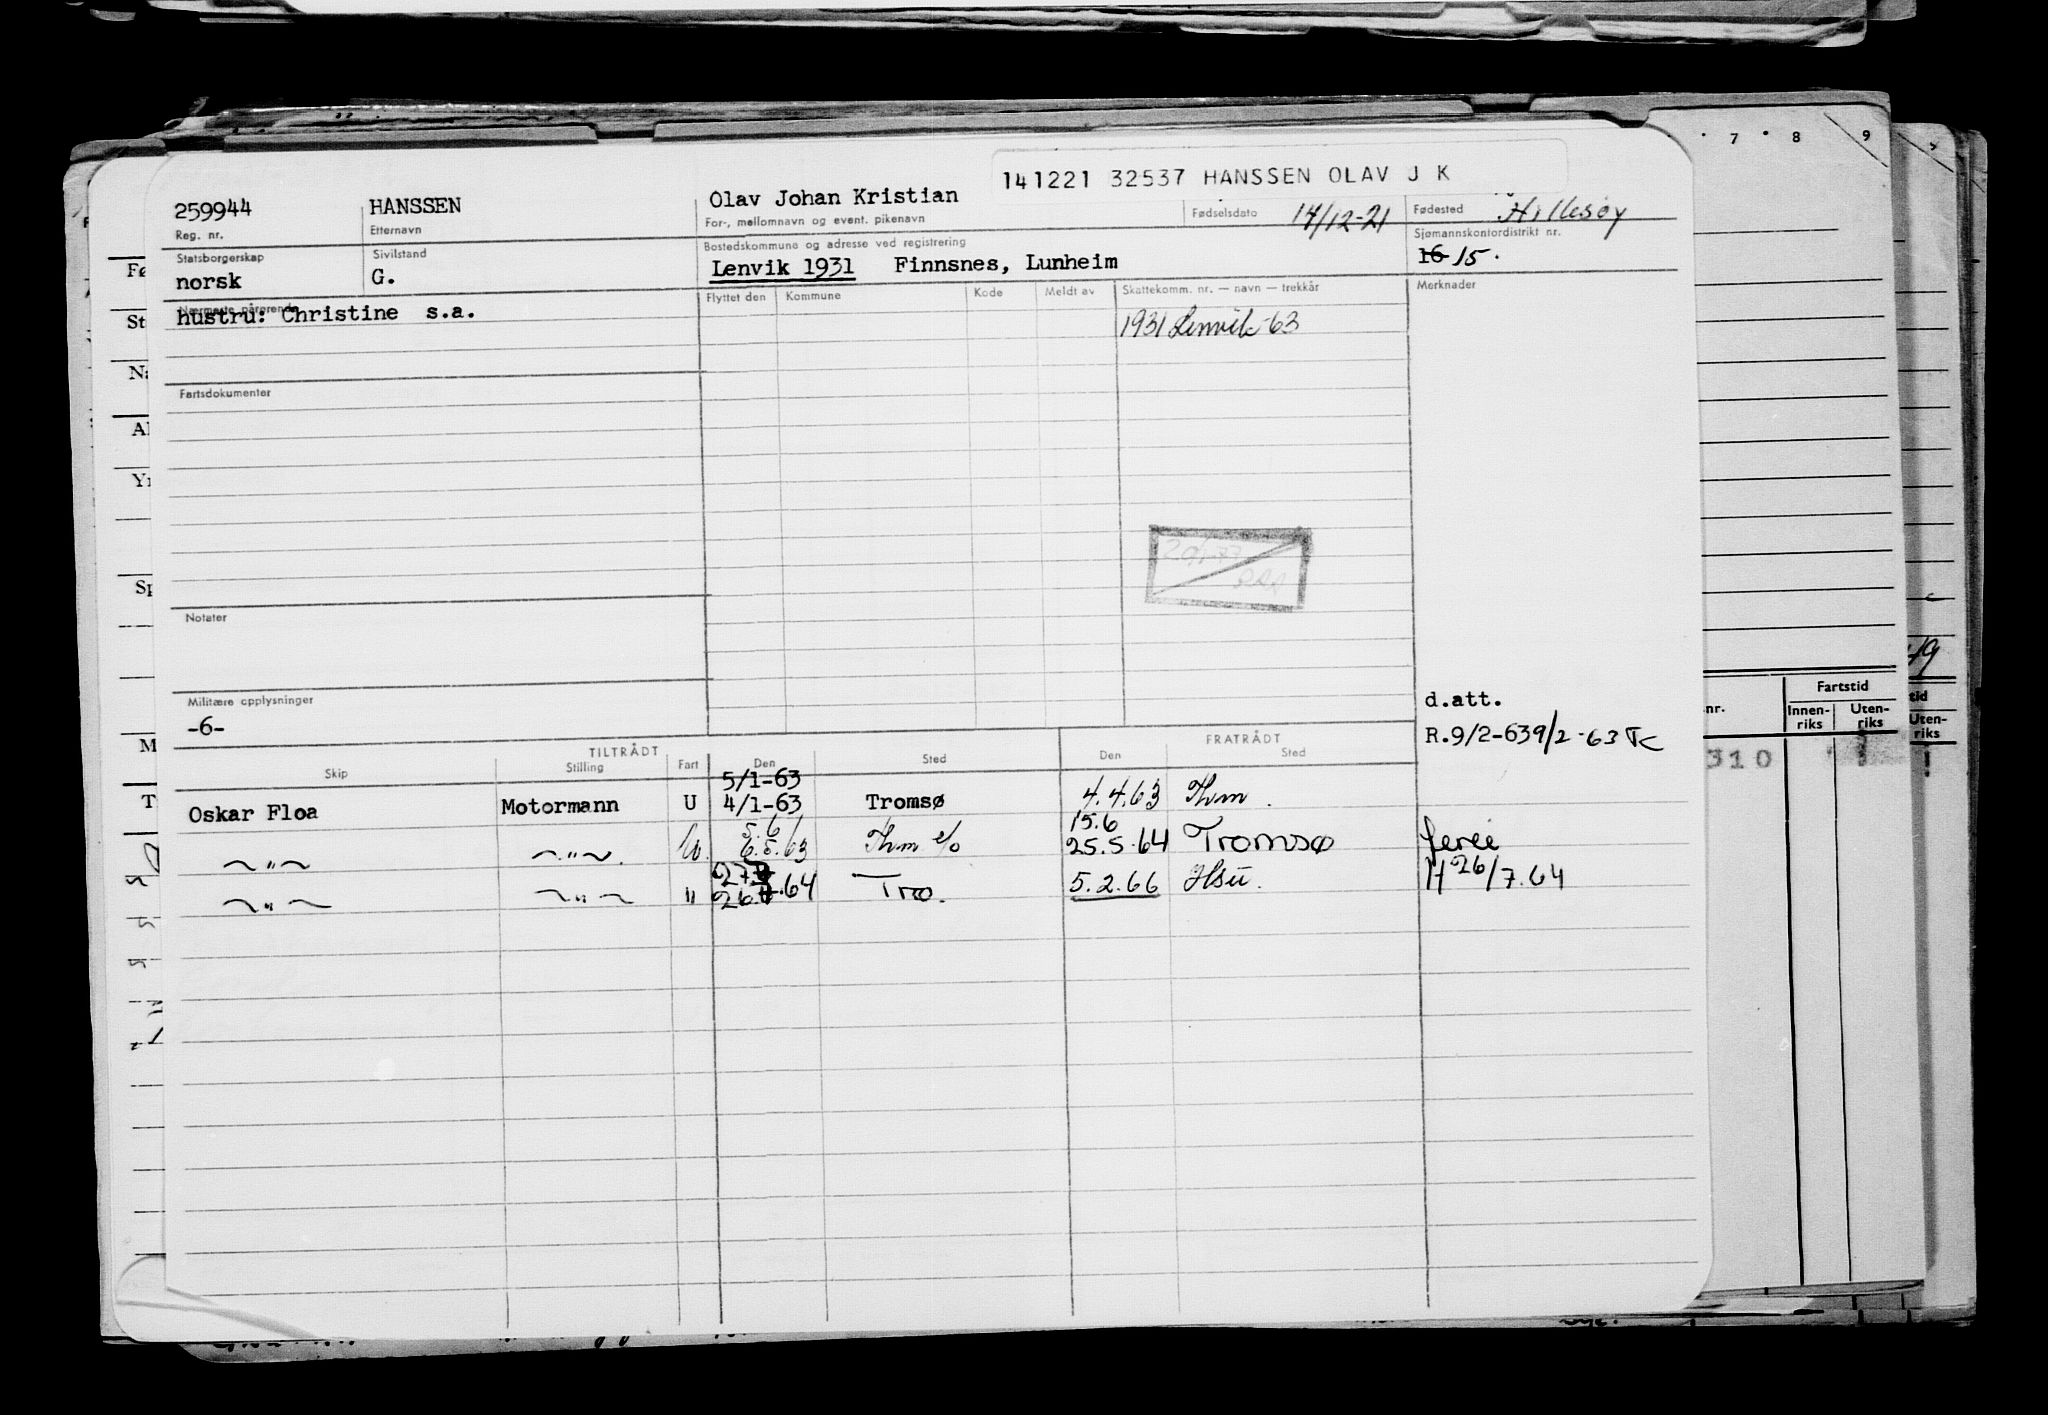 7 8 9
141221 32537 HANSSEN OLAV J K
259944 HANSSEN Olav Johan Kristian 14/12-21 Hillesøy
Reg. nr. Etternavn For-, mellomnavn og event. pikenavn Fødselsdato Fødested
Statsborgerskap Sivilstand Bostedskommune og adresse ved registrering Sjømannskontordistrikt nr.
norsk G. Lenvik 1931 Finnsnes, Lunheim 16 15.
Nærmeste pårørende Flyttet den Kommune Kode Meldt av Skattekomm. nr. — navn — trekkår Merknader
hustru: Christine s.a. 1931 Lenvik-63
Fartsdokumenter
Notater
Militære opplysninger d.att.
-6- R.9/2-63 9/2-63
TILTRÅDT FRATRÅDT
Skip Stilling Fart Den Sted Den Sted
5/1-63
Oskar Floa Motormann U 4/1-63 Tromsø 4.4.63 Thm.
5.6 15.6
—"— —"— U. 6.5.63 Thm 25.5.64 Tromsø ferie
27.
—"— —"— " 26. .64 Tro. 5.2.66 Hsu. H 26/7.64
Fartstid
nr. Innen- riks Uten- riks
310
tid
Uten- riks
49